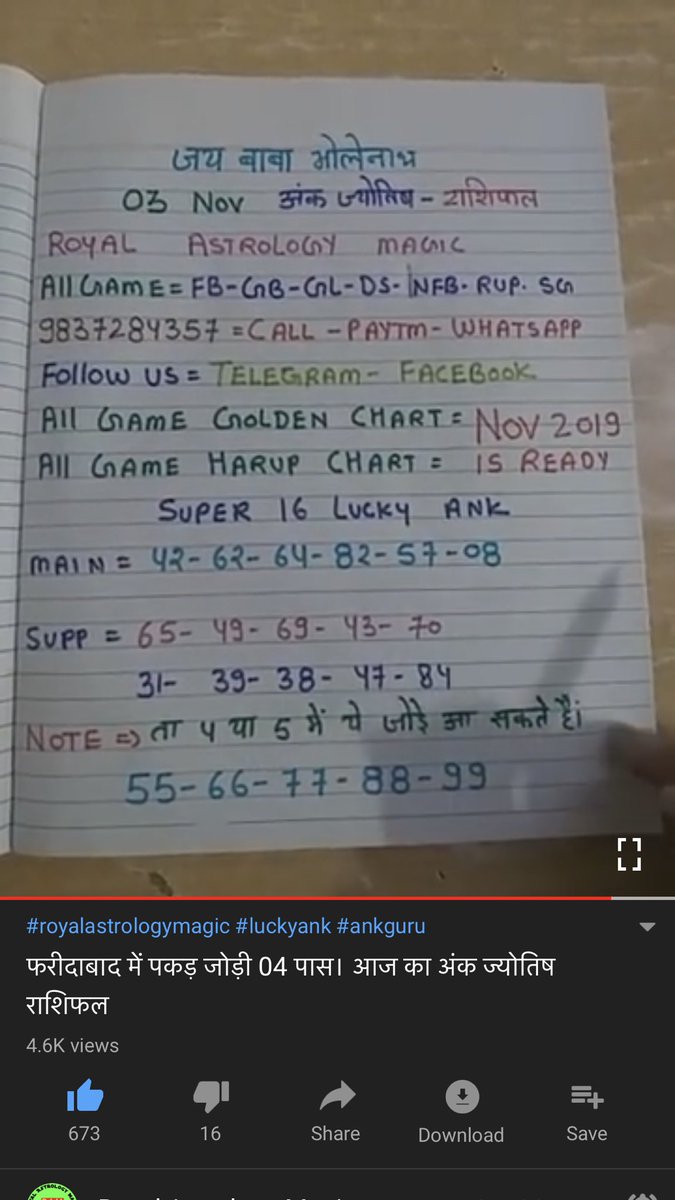 जय बाबा भोलेनाथ
03 Nov अंक ज्योतिष - राशिफल
ROYAL ASTROLOGY MAGIC
All GAME = FB-GB-GL-DS-NFB. RUP. SG
9837284357 = CALL - PAYTM - WHATSAPP
Follow US = TELEGRAM - FACEBOOK.
All GAME GOLDEN CHART = NOV 2019
All GAME HARUP CHART = IS READY
SUPER 16 Lucky ANK
MAIN = 42-62-64-82-57-08
SUPP = 65- 49- 69- 43- 70
31- 39- 38- 47- 84
NOTE => ता 4 या 5 में ये जोड़े आ सकते हैं।
55-66-77-88-99
#royalastrologymagic #luckyank #ankguru
फरीदाबाद में पकड़ जोड़ी 04 पास। आज का अंक ज्योतिष
राशिफल
4.6K views
673 16 Share Download Save